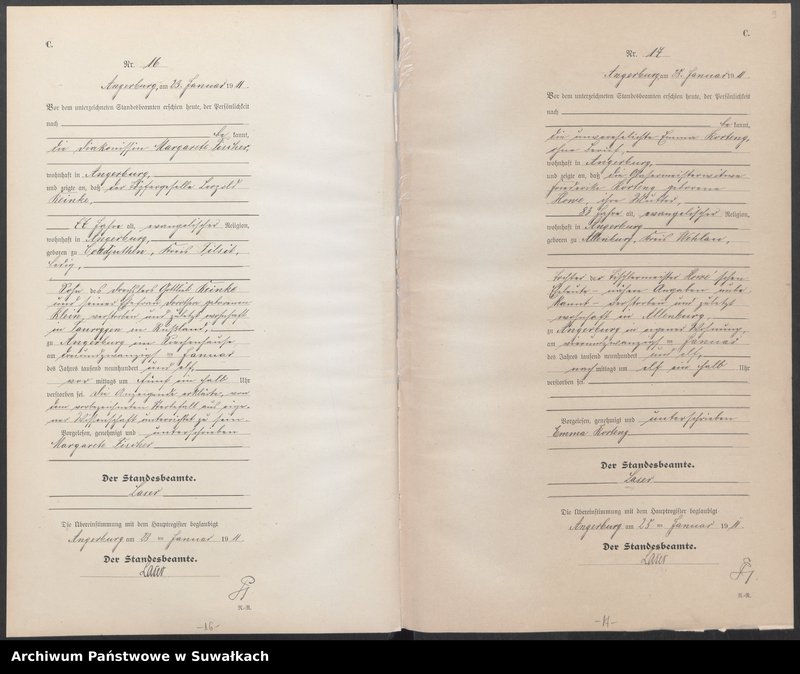 C.
Nr. 16
Angerburg, am 23. Januar 1911
Vor dem unterzeichneten Standesbeamten erschien heute, der Persönlichkeit
nach
be kannt,
die Diakonissin Margarete
wohnhaft in Angerburg,
und zeigte an, daß der Töpfergeselle Leopold
Reinke,
66 Jahre alt, evangelischer Religion,
wohnhaft in Angerburg,
geboren zu Kreis Tilsit,
ledig,
Sohn des Drechslers Gottlieb Reinke
und seiner Ehefrau Dorothea geborenen
Klein, verstorben und zuletzt wohnhaft
in Tauroggen in Rußland,
zu Angerburg im Siechenhause
am dreiundzwanzigsten Januar
des Jahres tausend neunhundert und elf,
vor mittags um fünf ein halb Uhr
verstorben sei. Die Anzeigende erklärte, von
dem vorbezeichneten Sterbefall aus eige-
ner Wissenschaft unterrichtet zu sein.
Vorgelesen, genehmigt und unterschrieben
Margarete
Der Standesbeamte.
Laser
Die Übereinstimmung mit dem Hauptregister beglaubigt
Angerburg am 23 ten Januar 1911
Der Standesbeamte.
Laser
R.-R.
-16-
9
C.
Nr. 17
Angerburg am 25. Januar 1911
Vor dem unterzeichneten Standesbeamten erschien heute, der Persönlichkeit
nach
be kannt,
die unverehelichte Emma Korteng,
ohne Beruf,
wohnhaft in Angerburg,
und zeigte an, daß die Glasermeisterwitwe
Friederike Korteng geborene
Howe, ihre Mutter,
83 Jahre alt, evangelischer Religion,
wohnhaft in Angerburg
geboren zu Allenburg, Kreis Wehlau,
Tochter der Tischlermeister Howe'schen
Eheleute - nähere Angaben unbe-
kannt - verstorben und zuletzt
wohnhaft in Allenburg,
zu Angerburg in eigener Wohnung,
am vierundzwanzigsten Januar
des Jahres tausend neunhundert und elf,
nach mittags um elf ein halb Uhr
verstorben sei.
Vorgelesen, genehmigt und unterschrieben
Emma Korteng
Der Standesbeamte.
Laser
Die Übereinstimmung mit dem Hauptregister beglaubigt
Angerburg am 25 ten Januar 1911.
Der Standesbeamte.
Laser
R.-R.
-17-
Archiwum Państwowe w Suwałkach